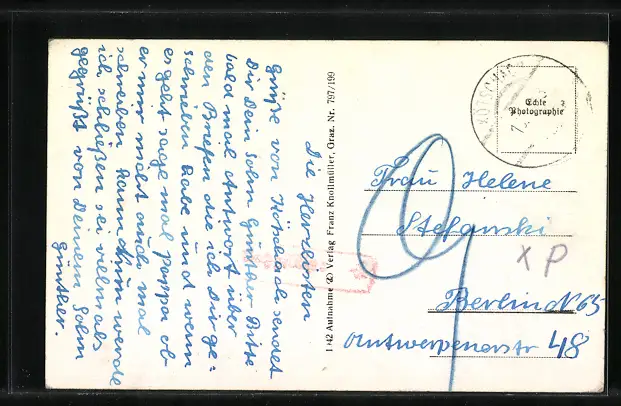 Die Herzlichsten
Grüße von Kötschach sendet
Dir dein sohn Günther Bitte
bald mal Antwort über
den Briefen die ich Dir ge=
schrieben habe und wenn
es geht sage mal Pappa ob
er mir nicht auch mal
schreiben kann Nun werde
ich schließen sei vielmals
gegrüßt von Deinem Sohn
Günther.
1942 Aufnahme (Z) Verlag Franz Knollmüller, Graz. Nr. 797/199
Echte
Photographie
9
Frau Helene
Stefanski
XP
Berlin N 65
Antwerpenerstr 48